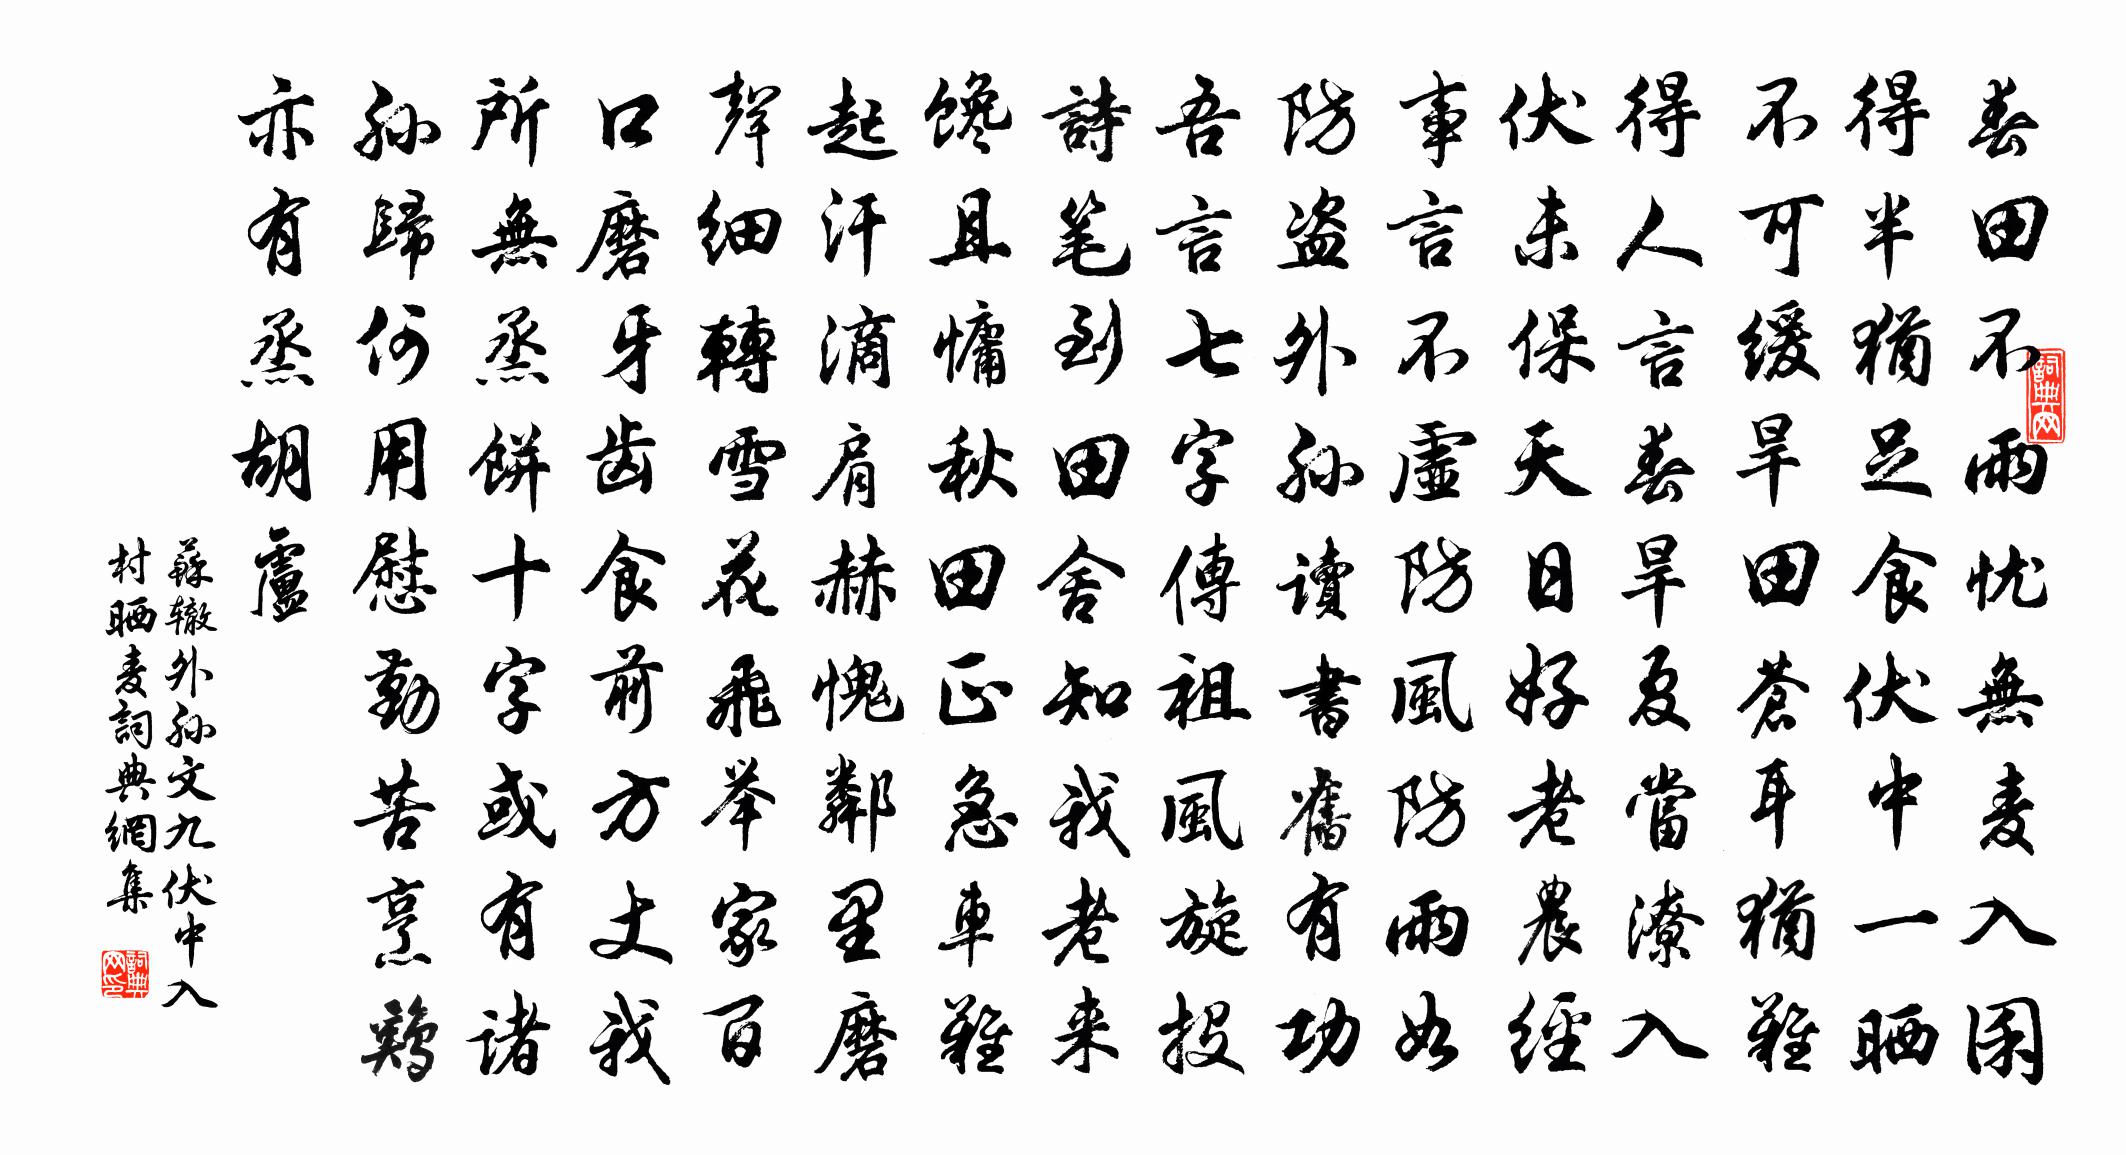 春田不雨忧無麦入囷
得半猶足食伏中一晒
不可缓旱田蒼耳猶難
得人言春旱夏當潦入
伏未保天日好老農經
事言不虛防風防雨如
防盗外孙讀書舊有功
吾言七字傳祖風旋投
詩笔到田舍知我老来
馋且慵秋田正急車難
起汗滴肩赫愧鄰里磨
聲细轉雪花飛举家百
口磨牙齿食前方丈我
所無蒸餅十字或有诸
孙歸何用慰勤苦烹鷄
亦有蒸胡盧
蘇辙外孙文九伏中入
村晒麦詞典網集
詞典网
詞典网印